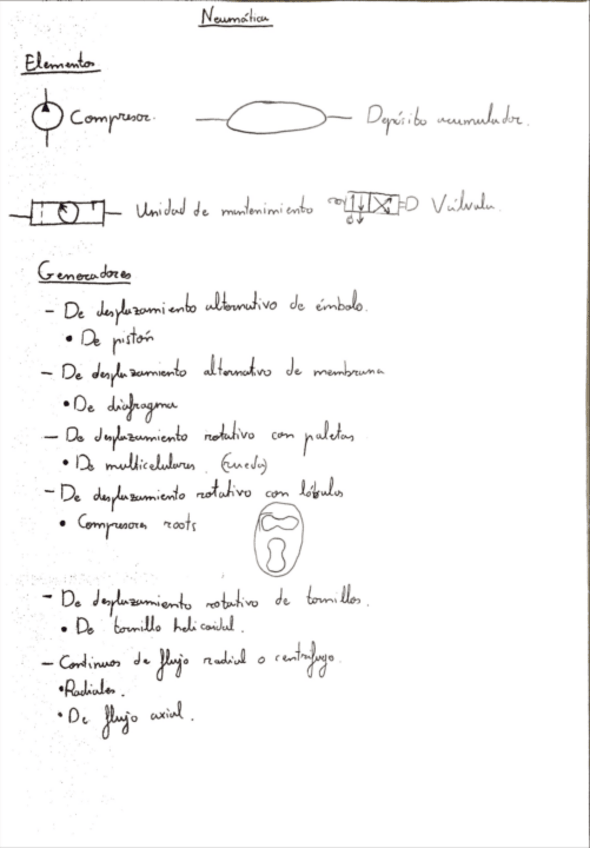 Neumática
Elementos
Compresor. Depósito acumulador.
Unidad de mantenimiento Válvula.
Generadores
- De desplazamiento alternativo de émbolo.
• De pistón
- De desplazamiento alternativo de membrana
• De diafragma
- De desplazamiento rotativo con paletas
• De multicelulares (rueda)
- De desplazamiento rotativo con lóbulos
• Compresores roots
- De desplazamiento rotativo de tornillos.
• De tornillo helicoidal.
- Continuos de flujo radial o centrífugo.
• Radiales.
• De flujo axial.